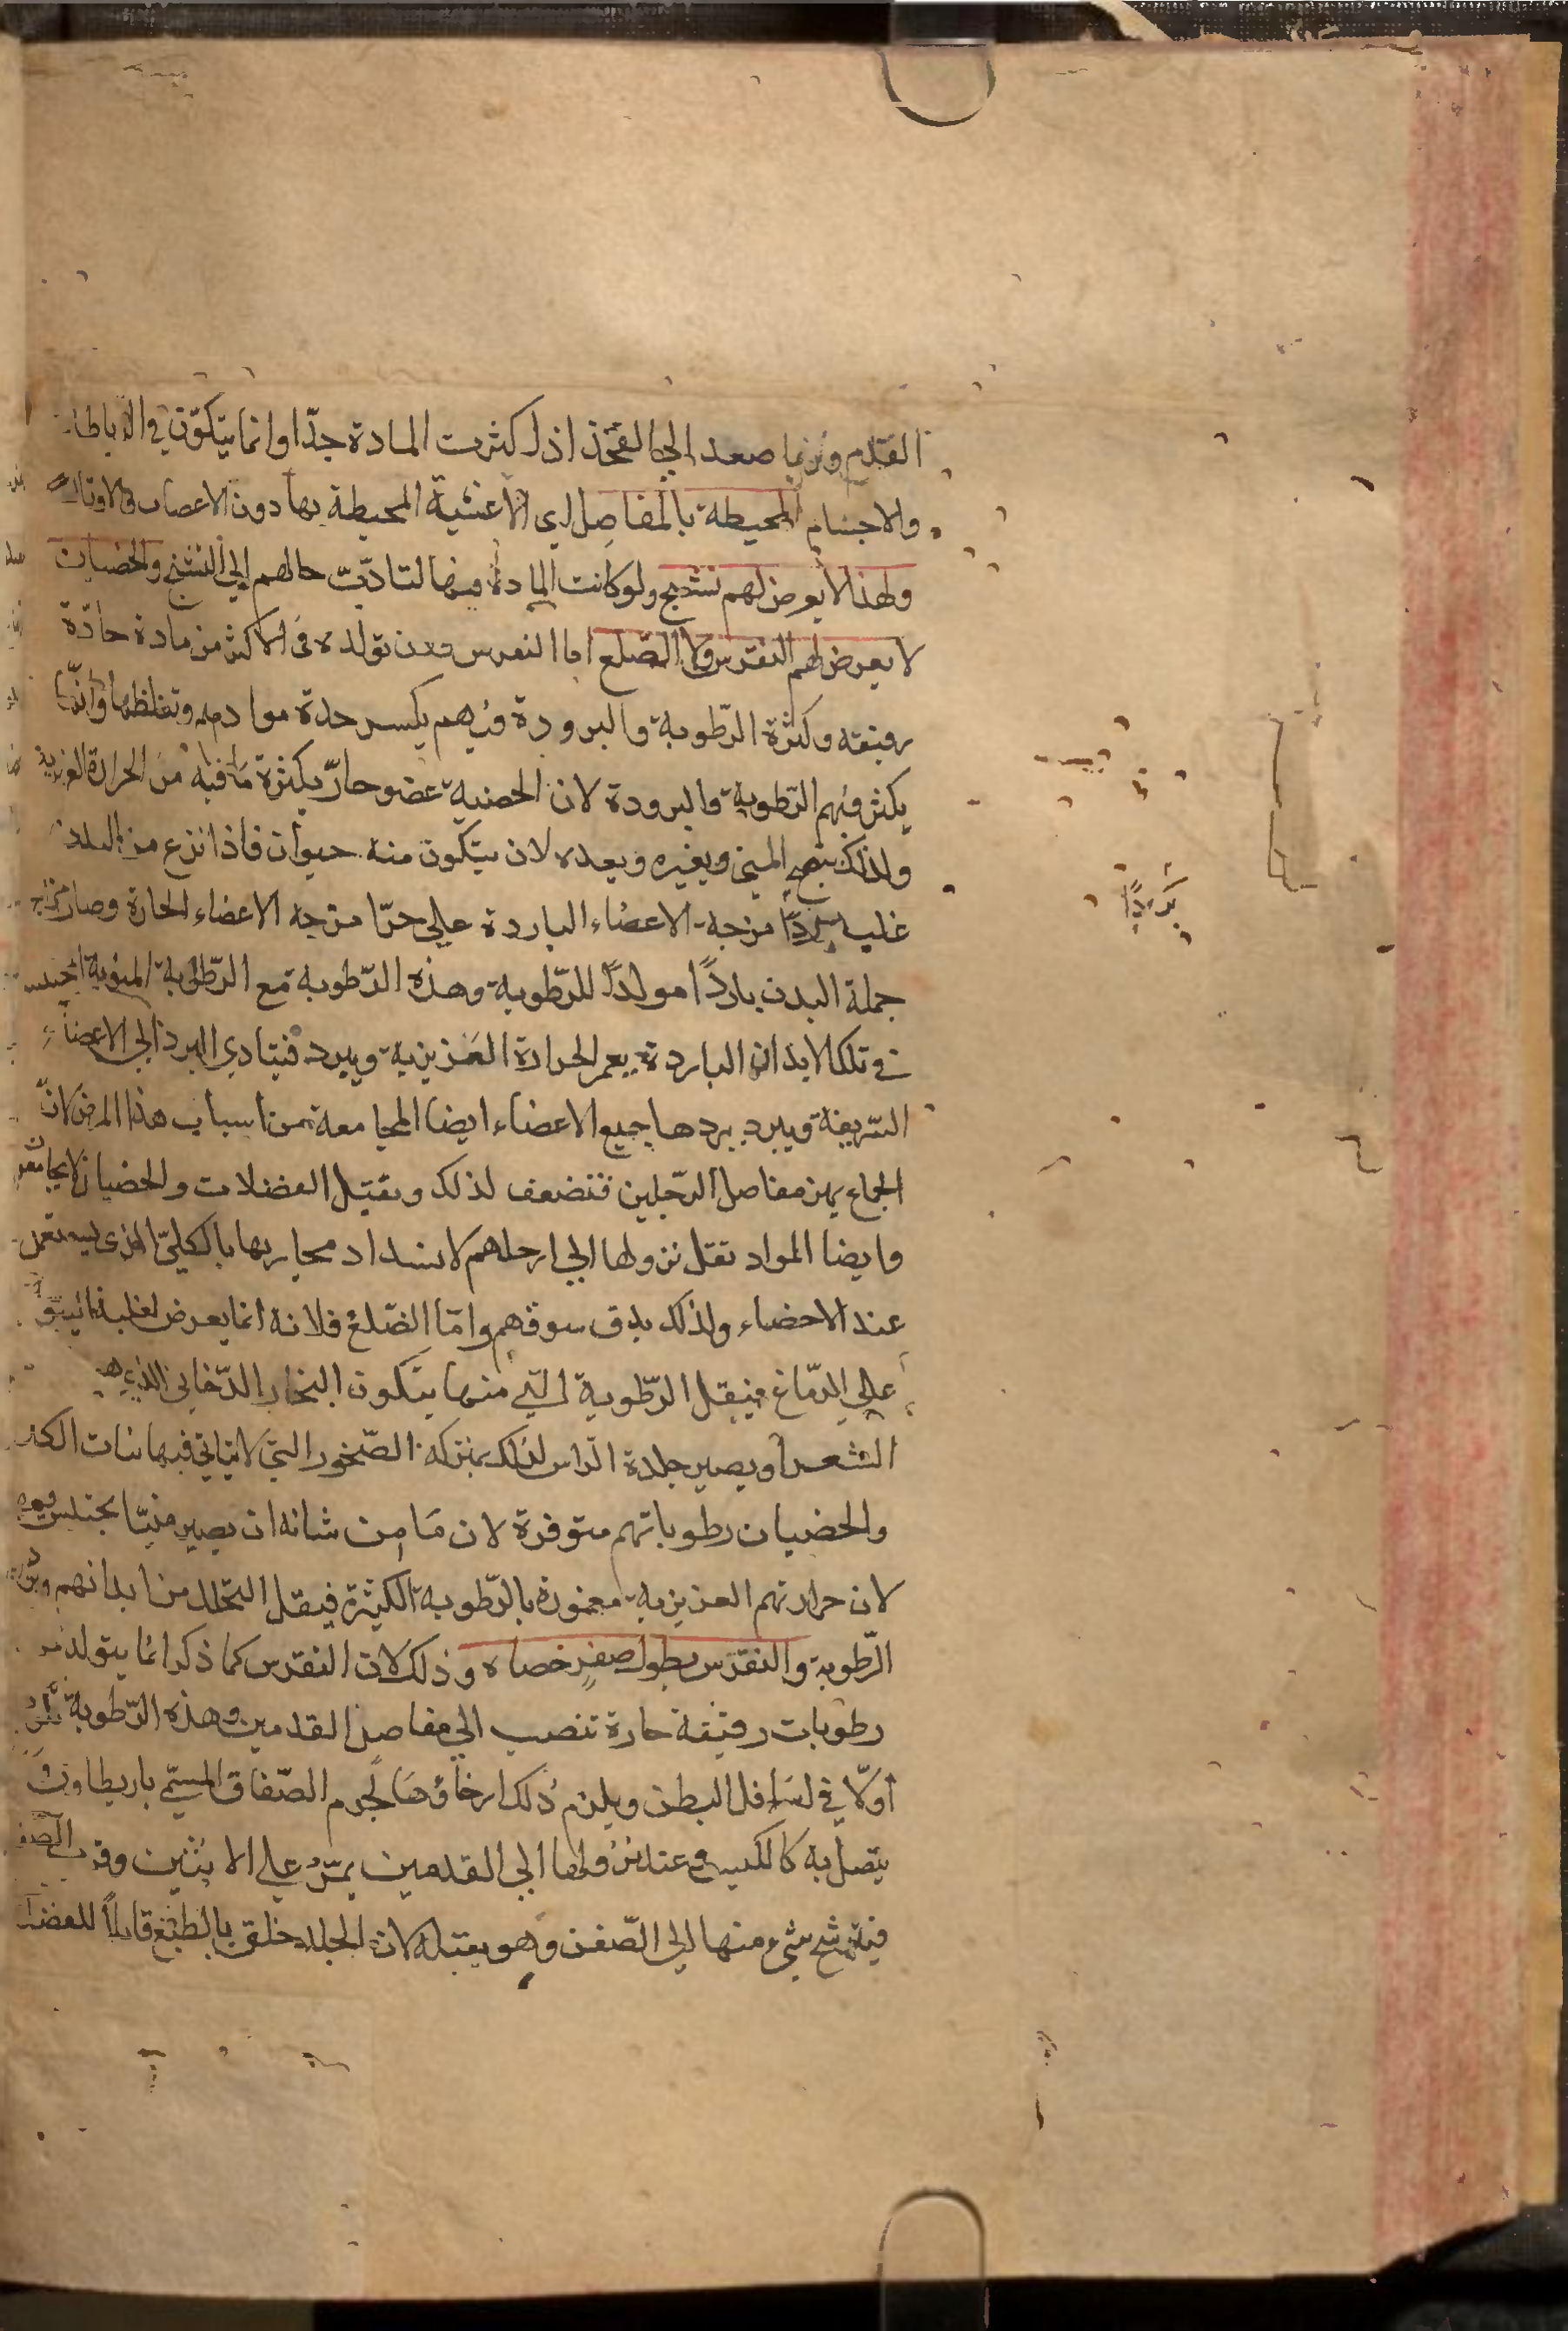 القدم وربما صعد الى الفخذ اذا كثرت المادة جدّا وانما يتكوّن في الرباطات
والاجسام المحيطة بالمفاصل اى الاغشية المحيطة بها دون الاعصاب والاوتار
ولهذا لا يعرض لهم تشنج ولو كانت المادة فيها لتادّت حالهم الى التشنج والخصيان
لا يعرض لهم النقرس ولا الصّلع اما النقرس فلان تولده فى الاكثر من مادة حادّة
رقيقه وكثرة الرّطوبة والبرودة فيهم يكسر حدة موادهم وتغلظها وانّما
يكثر فيهم الرّطوبة والبرودة لان الخصية عضو حارّ بكثرة ما فيه من الحرارة الغريزية
ولذلك ينضج المنى ويغيره ويعده لان يتكون منه حيوان فاذا نزع من البدن
غلب برد امزجة الاعضاء الباردة على حرّ امزجة الاعضاء الحارة وصار مزاج
جملة البدن باردًا مولدًا للرّطوبة وهذه الرّطوبة مع الرّطوبة المنوية
فى تلك الابدان الباردة يغمر الحرارة الغريزية ويبرد فيتادى البرد الى الاعضاء
الشريفة ويبرد ببردها جميع الاعضاء ايضا المجامعة من اسباب هذا المرض لانّ
الجماع يهز مفاصل الرّجلين فتضعف لذلك ويقبل الفضلات والخصيان لا يجامعون
وايضا المواد تقل نزولها الى ارجلهم لانسداد مجاريها بالكىّ الذى يستعمل
عند الاخصاء ولذلك يدق سوقهم وامّا الصّلع فلانه انما يعرض لغلبة اليبس
على الدّماغ فيقل الرّطوبة التى منها يتكون البخار الدّخانى الذى هو
الشعر او يصير جلدة الرّاس لذلك بمنزلة الصّخور التى لا يتاتى فيها نبات
والخصيان رطوباتهم متوفرة لان ما من شانه ان يصير منيّا يحتبس فيهم
لان حرارتهم الغريزية مغمورة بالرّطوبة الكثيرة فيقل التحلل من ابدانهم
الرّطوبة والنقرس يطول صفن خصاه وذلك لان النقرس كما ذكر انما يتولد من
رطوبات رقيقة حارة تنصب الى مفاصل القدمين وهذه الرّطوبة
اوّلا فى اسافل البطن ويلزم ذلك ارخاؤها لجرم الصّفاق المسمّى باريطاون
يتصل به كالكيس وعند نزولها الى القدمين يمرّ على الانثيين
فيترشح شىء منها الى الصّفن وهو يقبله لان الجلد خلق بالطبع قابلاً للفضل
بَردًا